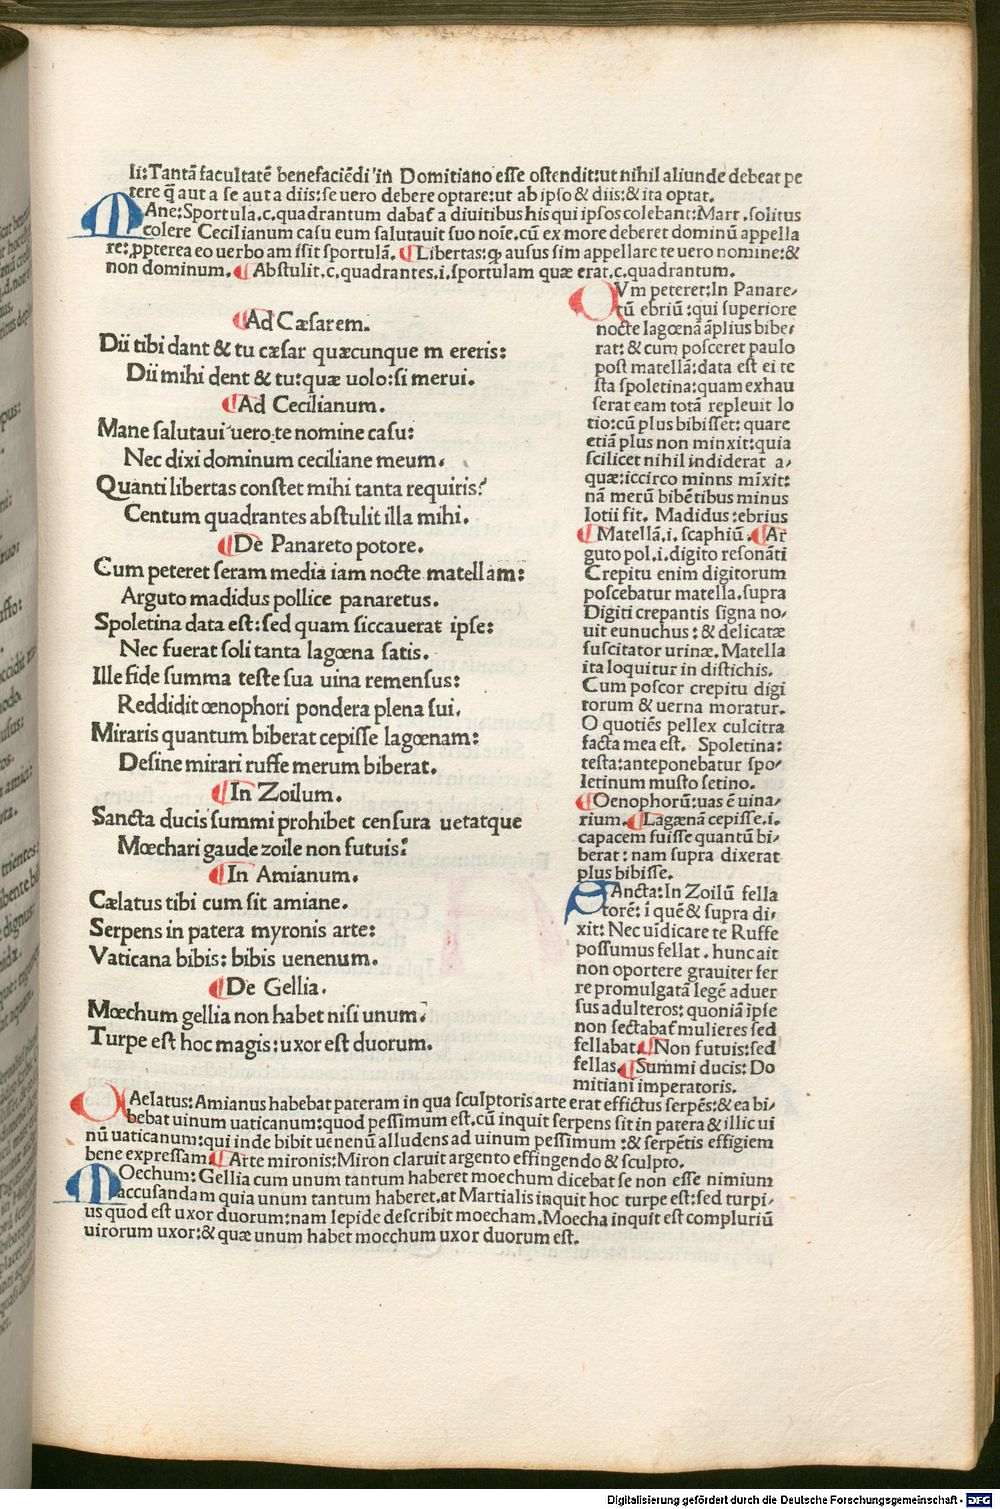 Ii:Tantã facultatẽ benefaciẽdi in Domitiano esse ostendit:ut nihil aliunde debeat pe
tere q̃ aut a se aut a diis:se uero debere optare:ut ab ipso & diis:& ita optat.
MAne:Sportula.c.quadrantum dabat̃ a diuitibus his qui ipsos colebant:Mart.solitus
colere Cecilianum casu eum salutauit suo noĩe.cũ ex more deberet dominũ appella
re:ꝓpterea eo uerbo amissit sportulã. ¶Libertas:ꝙ ausus sim appellare te uero nomine:&
non dominum. ¶Abstulit.c.quadrantes.i.sportulam quæ erat.c.quadrantum.
¶Ad Cæsarem.
Dii tibi dant & tu cæsar quæcunque mereris:
Dii mihi dent & tu:quæ uolo:si merui.
¶Ad Cecilianum.
Mane salutaui uero te nomine casu:
Nec dixi dominum ceciliane meum.
Quanti libertas constet mihi tanta requiris?
Centum quadrantes abstulit illa mihi.
¶De Panareto potore.
Cum peteret seram media iam nocte matellam:
Arguto madidus pollice panaretus.
Spoletina data est:sed quam siccauerat ipse:
Nec fuerat soli tanta lagœna satis.
Ille fide summa teste sua uina remensus:
Reddidit œnophori pondera plena sui.
Miraris quantum biberat cepisse lagœnam:
Desine mirari ruffe merum biberat.
¶In Zoilum.
Sancta ducis summi prohibet censura uetatque
Mœchari gaude zoile non futuis.
¶In Amianum.
Cælatus tibi cum sit amiane.
Serpens in patera myronis arte:
Vaticana bibis: bibis uenenum.
¶De Gellia.
Mœchum gellia non habet nisi unum.
Turpe est hoc magis:uxor est duorum.
CVm peteret:In Panare/
tũ ebriũ:qui superiore
nocte lagœna ãplius bibe/
rat:& cum posceret paulo
post matellã:data est ei te
sta spoletina:quam exhau
serat eam totã repleuit lo
tio:cũ plus bibisset: quare
etiã plus non minxit:quia
scilicet nihil indiderat a/
quæ:iccirco minus mĩxit:
nã merũ bibẽtibus minus
lotii fit. Madidus:ebrius
¶Matellã.i.scaphiũ. ¶Ar
guto pol.i.digito resonãti
Crepitu enim digitorum
poscebatur matella.supra
Digiti crepantis signa no/
uit eunuchus:& delicatæ
suscitator urinæ.Matella
ita loquitur in distichis.
Cum poscor crepitu digi
torum & uerna moratur.
O quotiẽs pellex culcitra
facta mea est. Spoletina:
testa:anteponebatur spo/
letinum musto setino.
¶Oenophorũ:uas ẽ uina/
rium. ¶Lagænã cepisse.i.
capacem fuisse quantũ bi/
berat:nam supra dixerat
plus bibisse.
SAncta:In Zoilũ fella
torẽ: ĩ quẽ & supra di/
xit:Nec uidicare te Ruffe
possumus fellat.hunc ait
non oportere grauiter fer
re promulgatã legẽ aduer
sus adulteros:quoniã ipse
non sectabat̃ mulieres sed
fellabat. ¶Non futuis:sed
fellas. ¶Summi ducis:Do
mitiani imperatoris.
CAelatus:Amianus habebat pateram in qua sculptoris arte erat effictus serpẽs:& ea bi/
bebat uinum uaticanum:quod pessimum est.cũ inquit serpens sit in patera & illic ui
nũ uaticanum:qui inde bibit uenenũ alludens ad uinum pessimum:& serpẽtis effigiem
bene expressam ¶Arte mironis:Miron claruit argento effingendo & sculpto.
MOechum:Gellia cum unum tantum haberet moechum dicebat se non esse nimium
accusandam quia unum tantum haberet.at Martialis inquit hoc turpe est:sed turpi/
us quod est uxor duorum:nam lepide describit moecham.Moecha inquit est compluriũ
uirorum uxor:& quæ unum habet moechum uxor duorum est.
Digitalisierung gefördert durch die Deutsche Forschungsgemeinschaft - DFG